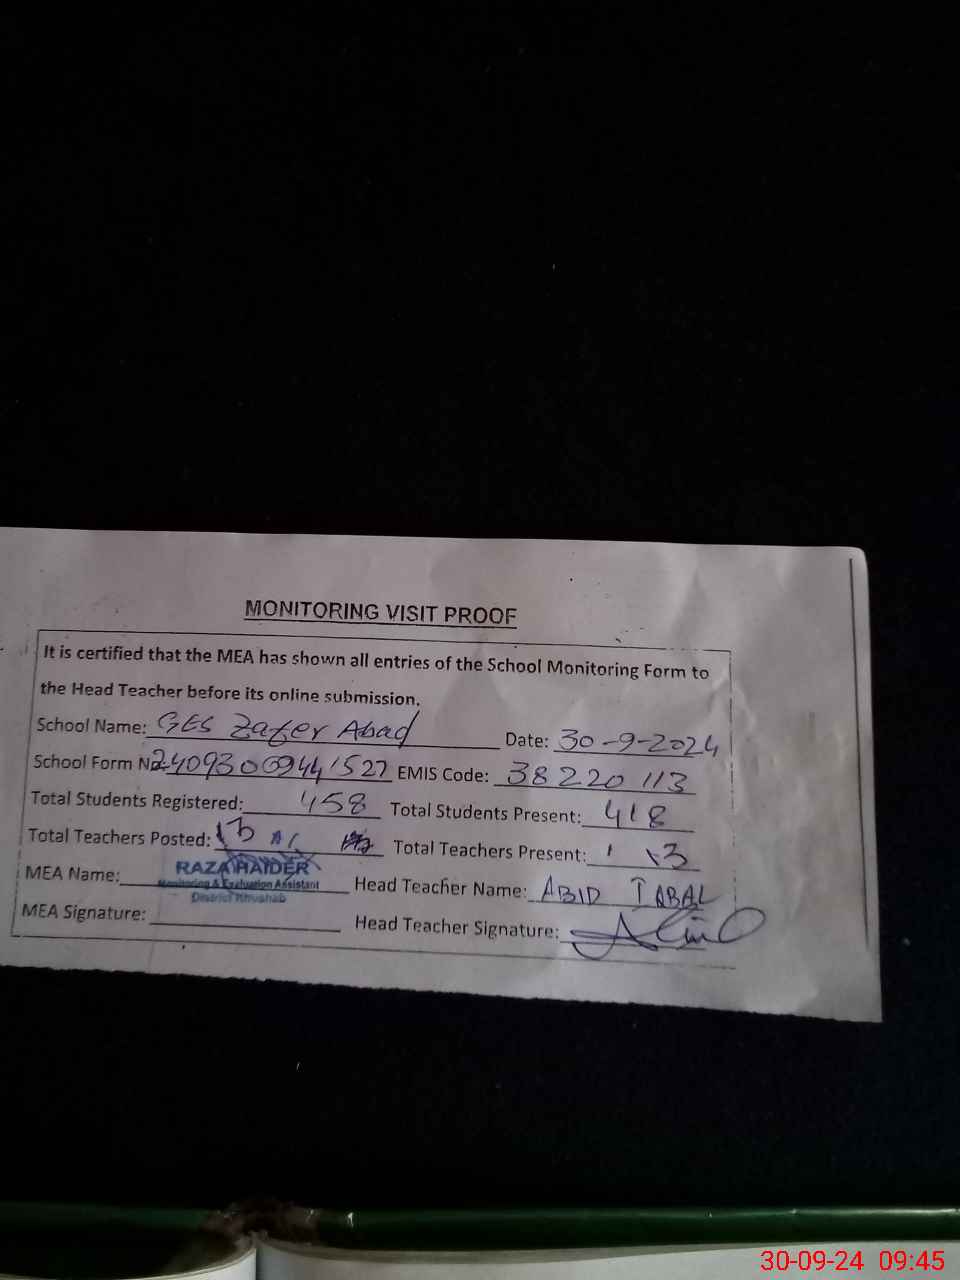 MONITORING VISIT PROOF
It is certified that the MEA has shown all entries of the School Monitoring Form to
the Head Teacher before its online submission.
School Name: GES Zafer Abad Date: 30-9-2024
School Form N 24093009441527 EMIS Code: 38220113
Total Students Registered: 458 Total Students Present: 418
Total Teachers Posted: 13 Total Teachers Present: 13
MEA Name: RAZA HAIDER Head Teacher Name: ABID IQBAL
Monitoring & Evaluation Assistant
District Khushab
MEA Signature: Head Teacher Signature:
30-09-24 09:45